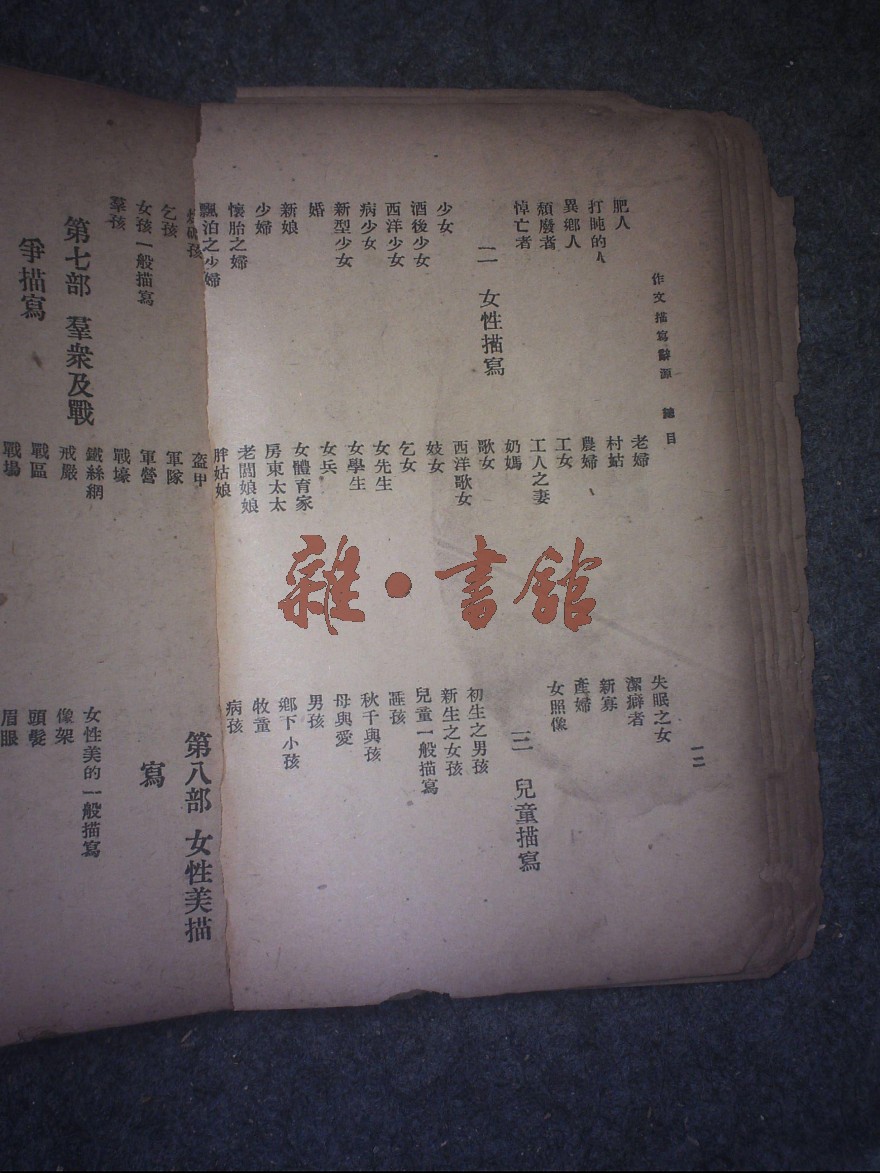 作文描寫辭源 總目
一二
肥人
打盹的人
異鄉人
頹廢者
悼亡者
二 女性描寫
少女
酒後少女
西洋少女
病少女
新型少女
婚
新娘
少婦
懷胎之婦
飄泊之少婦
老婦
村姑
農婦
工女
工人之妻
奶媽
歌女
西洋歌女
妓女
乞女
女先生
女學生
女兵
女體育家
房東太太
老闆娘娘
胖姑娘
失眠之女
潔癖者
新寡
產婦
女照像
三 兒童描寫
初生之男孩
新生之女孩
兒童一般描寫
睡孩
秋千與孩
母與愛
男孩
鄉下小孩
牧童
病孩
乞孩
女孩一般描寫
羣孩
第七部 羣衆及戰
爭描寫
盔甲
軍隊
軍營
戰壕
鐵絲網
戒嚴
戰區
戰場
第八部 女性美描
寫
女性美的一般描寫
像架
頭髮
眉眼
雜·書館